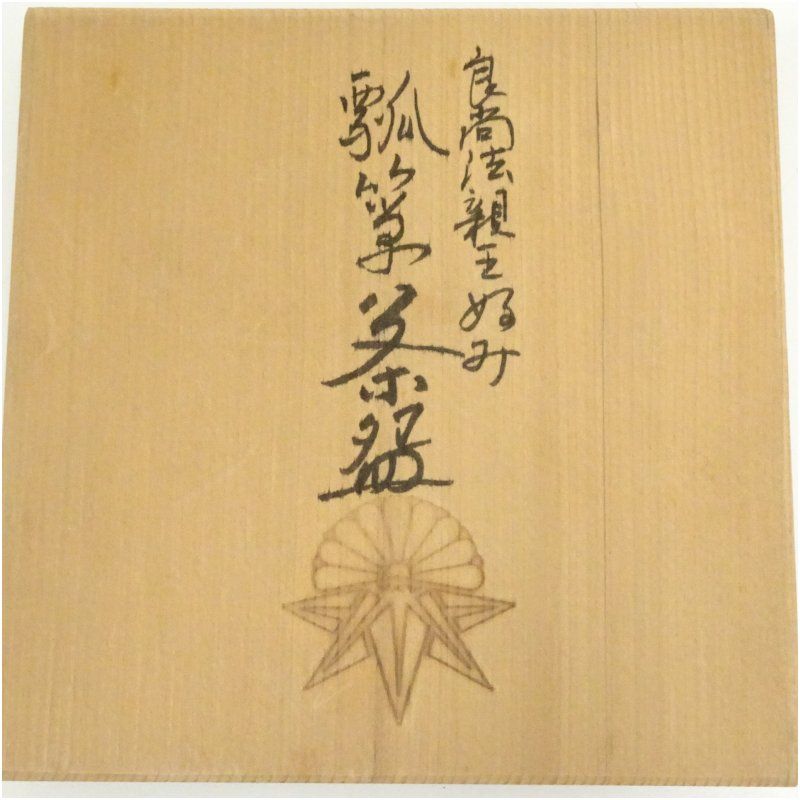 良尚法親王好み
瓢箪茶盌